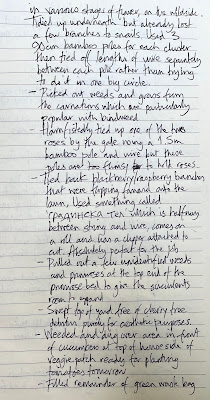 in various stages of flower, on the hillside.
Tied up underneath but already lost
a few branches to snails. Used 3
90cm bamboo poles for each cluster
then tied off lengths of wire separately
between each pole rather than trying
to do it in one big circle.
- Picked out weeds and grass from
the carnations which are particularly
popular with bindweed
- Hamfistedly tied up one of the two
roses by the gate using a 1.5m
bamboo pole and wire but these
poles are too flimsy to hold roses
- Tied back blackberry/raspberry branches
that were flopping forward onto the
lawn, used something called
"ГРАДИНСКА ТЕЛ" which is halfway
between string and wire, comes on
a roll and has a clipper attached to
cut. Absolutely perfect for the job
- Pulled out a few unidentified weeds
and primroses at the top end of the
primrose bed to give the succulents
room to expand
- Swept top of yard free of cherry tree
detritus purely for aesthetic purposes.
- Weeded and dug over area in front
of cucumbers at top of house side of
veggie patch ready for planting
tomatoes tomorrow
- Filled remainder of green waste bag